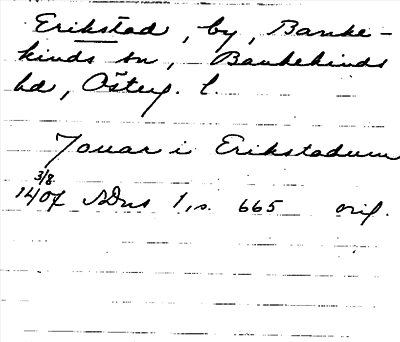 Erikstad, by, Banke-
kinds sn, Bankekinds
hd, Österg. l.
Jouar i Erikstadum
3/8
1407 SDns 1, s. 665 orig.